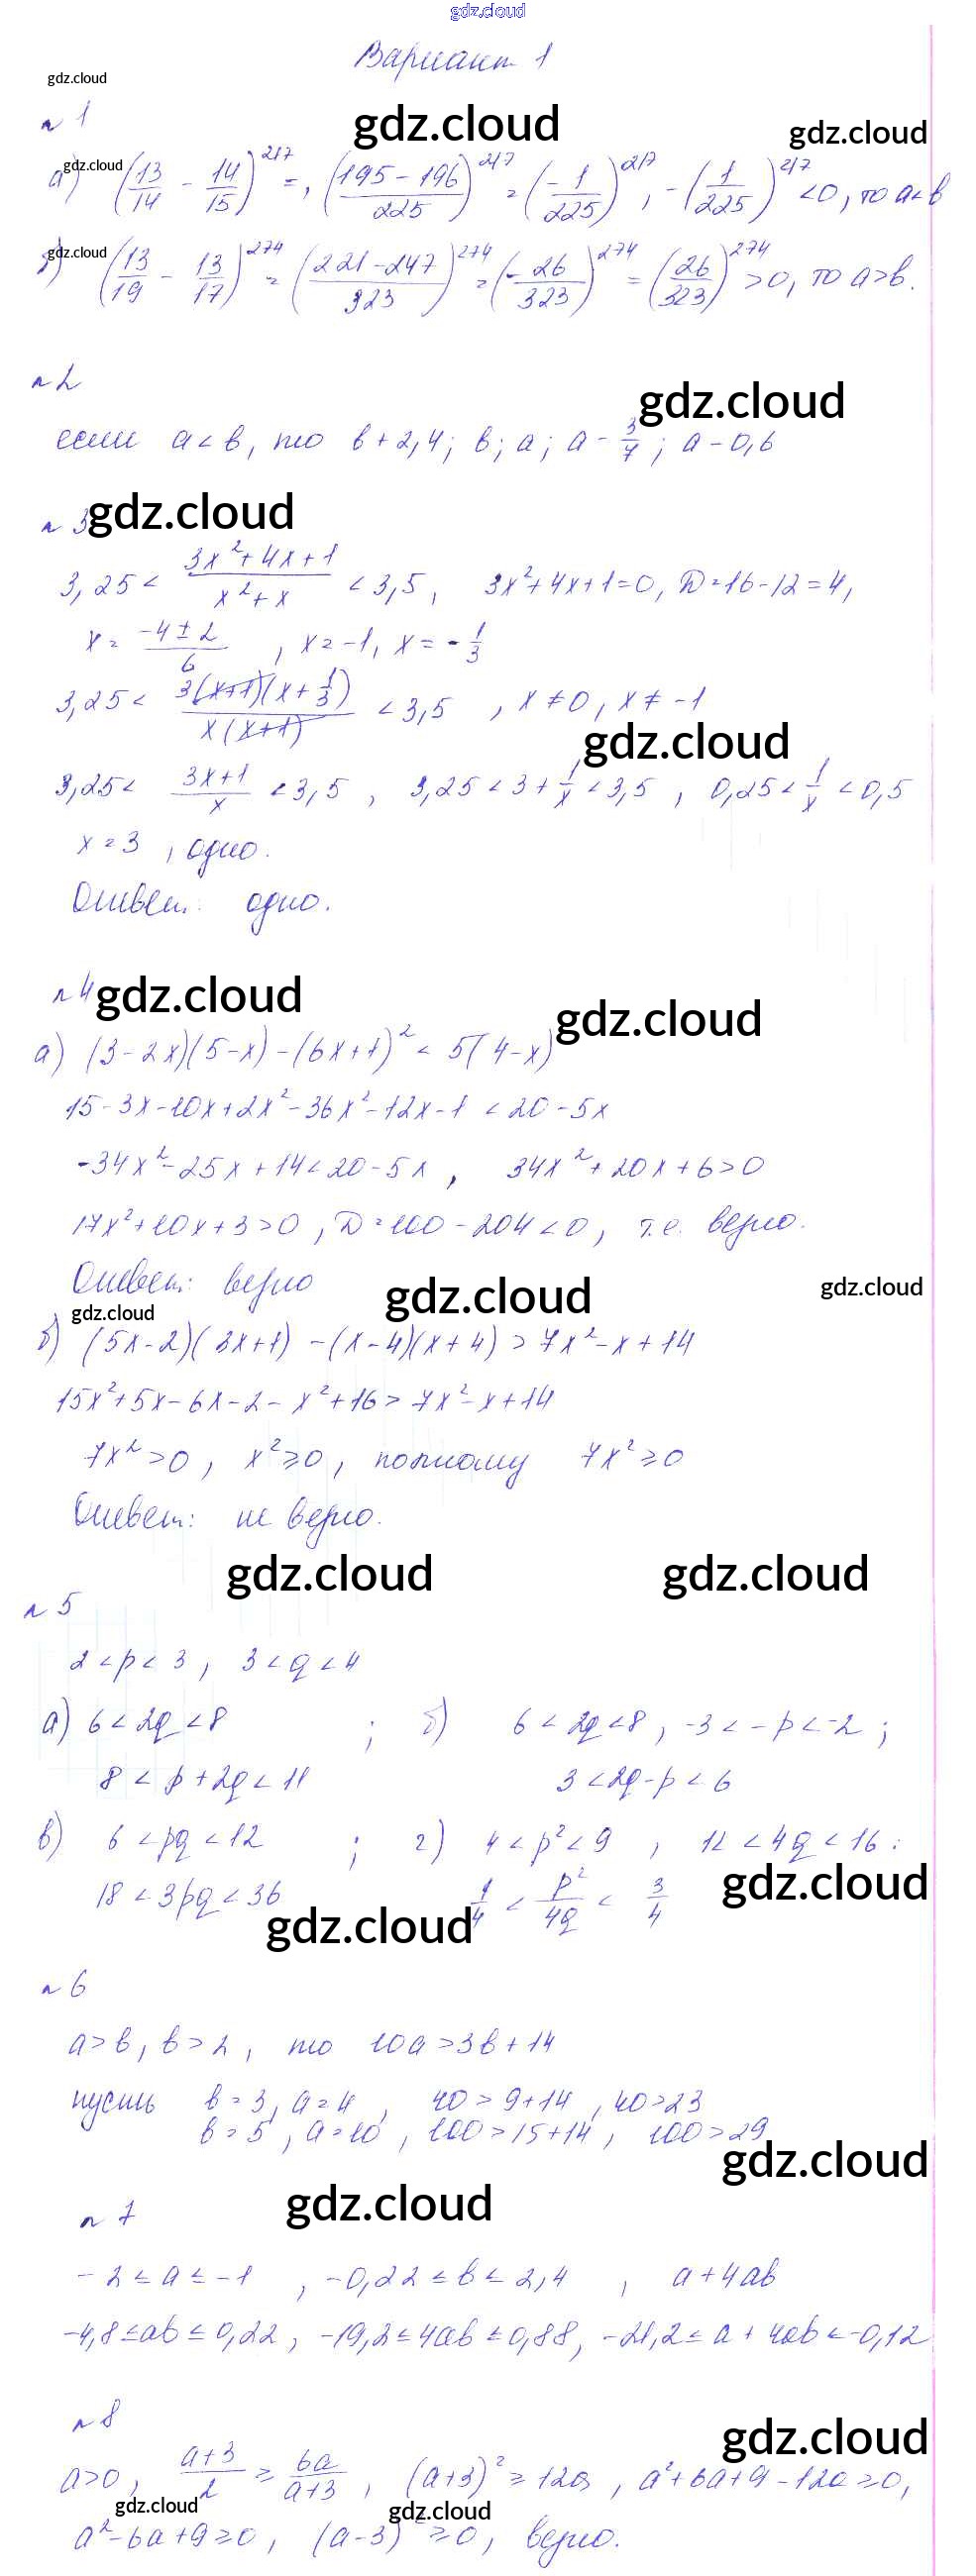 gdz.cloud
Вариант 1
gdz.cloud
№ 1
gdz.cloud
gdz.cloud
gdz.cloud
а) (13/14 - 14/15)^217 =, ((195-196)/225)^217 = (-1/225)^217, -(1/225)^217 < 0, то а < в
gdz.cloud
б) (13/19 - 13/17)^274 = ((221-247)/323)^274 = (-26/323)^274 = (26/323)^274 > 0, то а > в.
№ 2
gdz.cloud
если а < в, то в + 2,4; в; а; а - 3/7; а - 0,6
№ 3
gdz.cloud
3,25 < (3x²+4x+1)/(x²+x) < 3,5, 3x²+4x+1=0, D=16-12=4,
x = (-4±2)/6, x = -1, x = -1/3
3,25 < 3(x+1)(x+1/3)/(x(x+1)) < 3,5, x ≠ 0, x ≠ -1
gdz.cloud
3,25 < (3x+1)/x < 3,5, 3,25 < 3 + 1/x < 3,5, 0,25 < 1/x < 0,5
x = 3, одно.
Ответ: одно.
№ 4
gdz.cloud
gdz.cloud
а) (3-2x)(5-x)-(6x+1)² < 5(4-x)
15-3x-10x+2x²-36x²-12x-1 < 20-5x
-34x²-25x+14 < 20-5x, 34x²+20x+6>0
17x²+10x+3>0, D=100-204<0, т.е. верно.
Ответ: верно
gdz.cloud
gdz.cloud
gdz.cloud
б) (5x-2)(3x+1)-(x-4)(x+4) > 7x²-x+14
15x²+5x-6x-2-x²+16 > 7x²-x+14
7x²>0, x²≥0, поэтому 7x²≥0
Ответ: не верно.
gdz.cloud
gdz.cloud
№ 5
2 < p < 3, 3 < q < 4
а) 6 < 2q < 8; б) 6 < 2q < 8, -3 < -p < -2;
8 < p + 2q < 11 3 < 2q - p < 6
в) 6 < pq < 12; г) 4 < p² < 9, 12 < 4q < 16:
gdz.cloud
18 < 3pq < 36 1/4 < p²/4q < 3/4
gdz.cloud
№ 6
а > в, в > 2, то 10а > 3в + 14
пусть в = 3, а = 4, 40 > 9+14, 40 > 23
в = 5, а = 10, 100 > 15+14, 100 > 29
gdz.cloud
№ 7
gdz.cloud
-2 ≤ а ≤ -1, -0,22 ≤ в ≤ 2,4, а + 4ав
-4,8 ≤ ав ≤ 0,22, -19,2 ≤ 4ав ≤ 0,88, -21,2 ≤ а + 4ав ≤ -0,12
№ 8
gdz.cloud
а>0, (а+3)/2 ≥ 6а/(а+3), (а+3)² ≥ 12а, а²+6а+9-12а ≥ 0,
gdz.cloud
gdz.cloud
а²-6а+9≥0, (а-3)²≥0, верно.